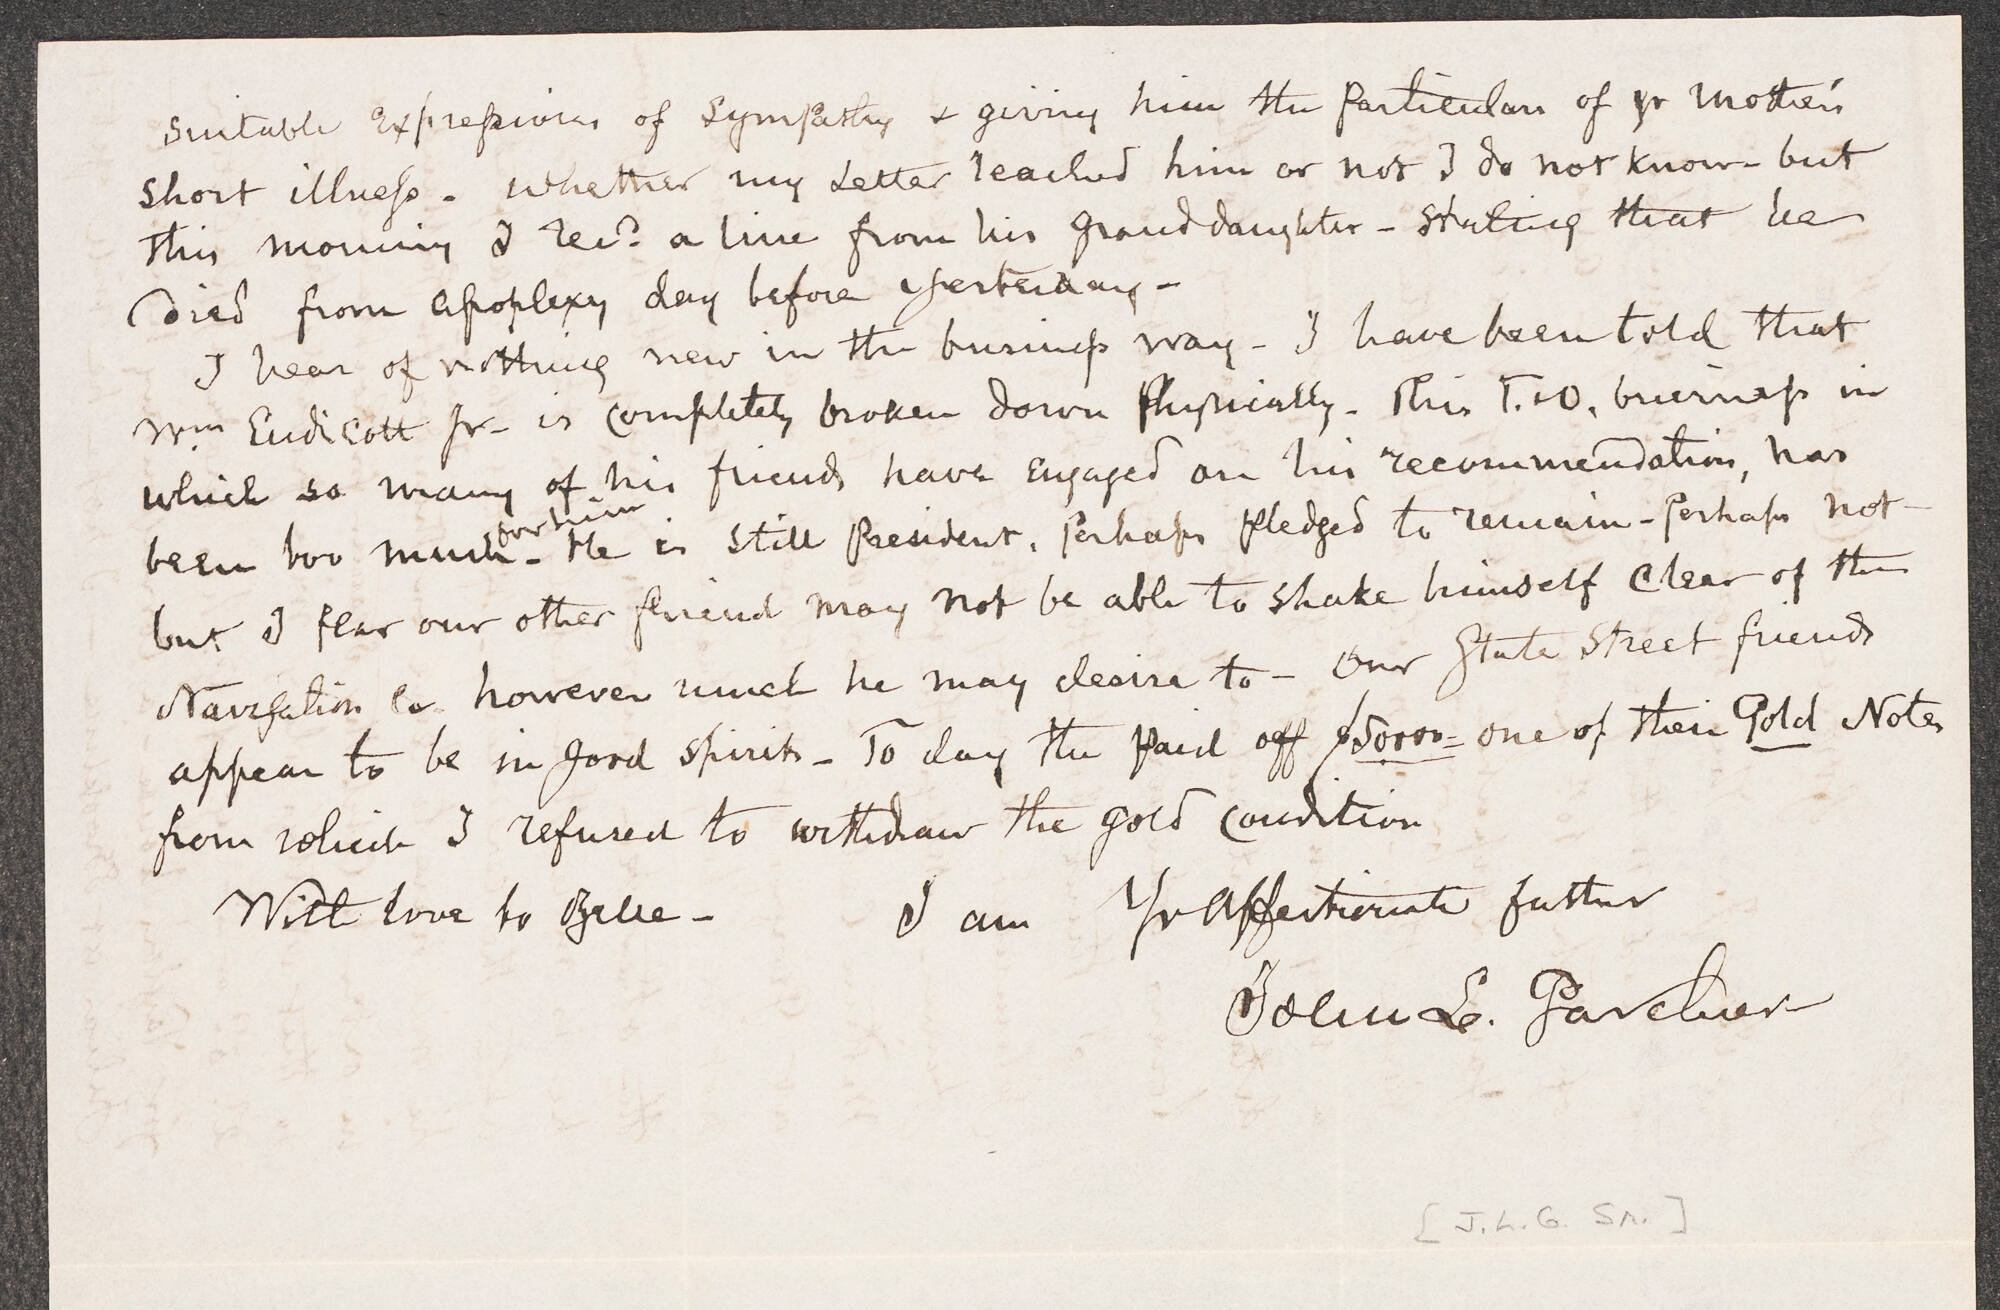 suitable expressions of sympathy & giving him the particulars of yr mother's
short illness - whether my letter reached him or not I do not know - but
this morning I recd. a line from his granddaughter - stating that he
died from apoplexy day before yesterday -
I hear of nothing new in the business way - I have been told that
Wm Endicott Jr - is completely broken down physically - This T. & O. business in
which so many of his friends have engaged on his recommendation, has
been too much for him - He is still President, perhaps pledged to remain - perhaps not -
but I fear our other friend may not be able to shake himself clear of the
Navigation Co however much he may desire to - Our State Street friends
appear to be in good spirits - To day the paid off $50000= one of their Gold Notes
from which I refused to withdraw the gold condition
With love to Belle - I am Yr affectionate father
John L. Gardner
[J.L.G. Sr.]